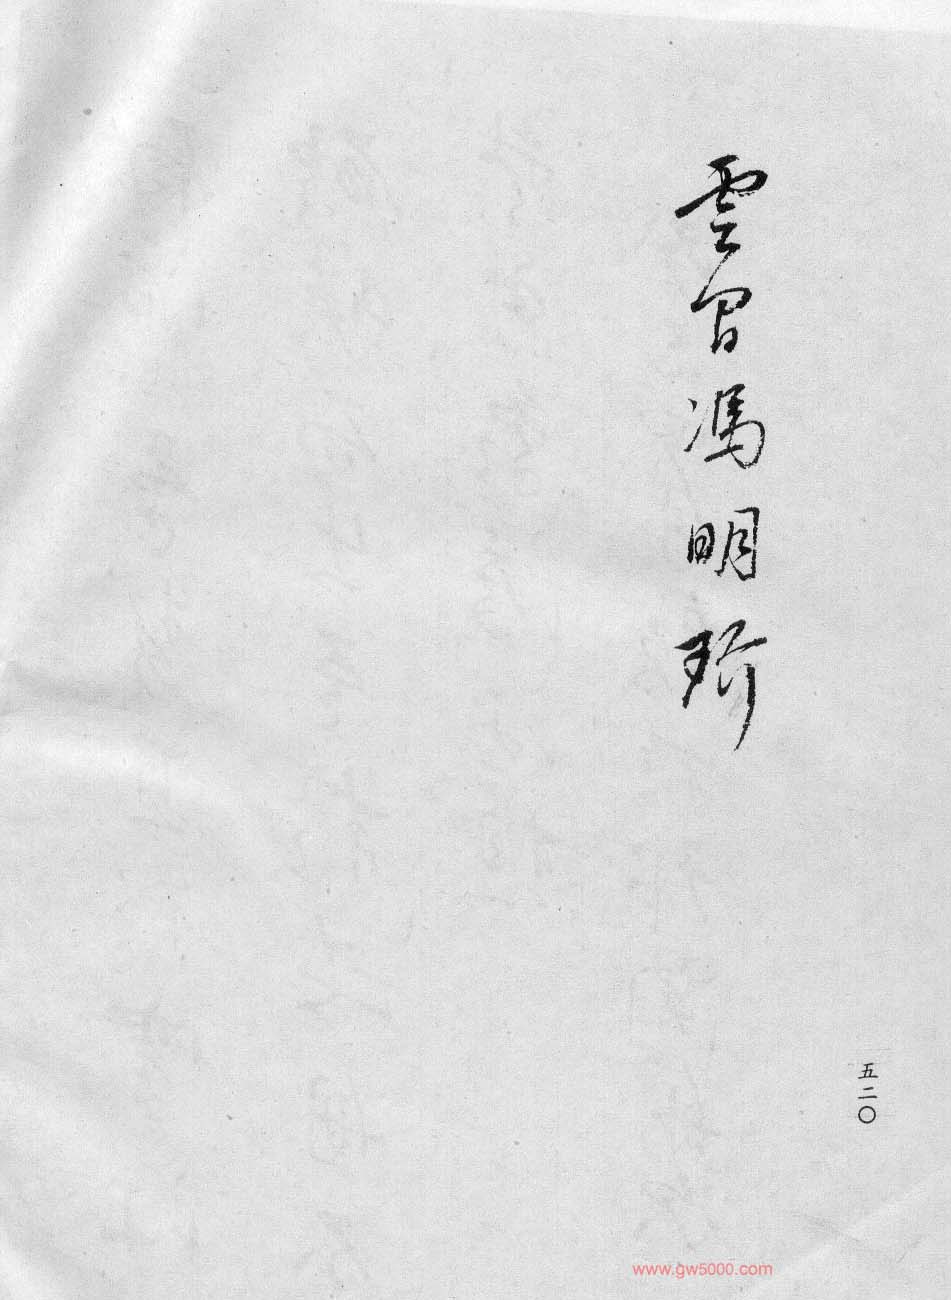 雲曾馮明玠
五二〇
www.gw5000.com